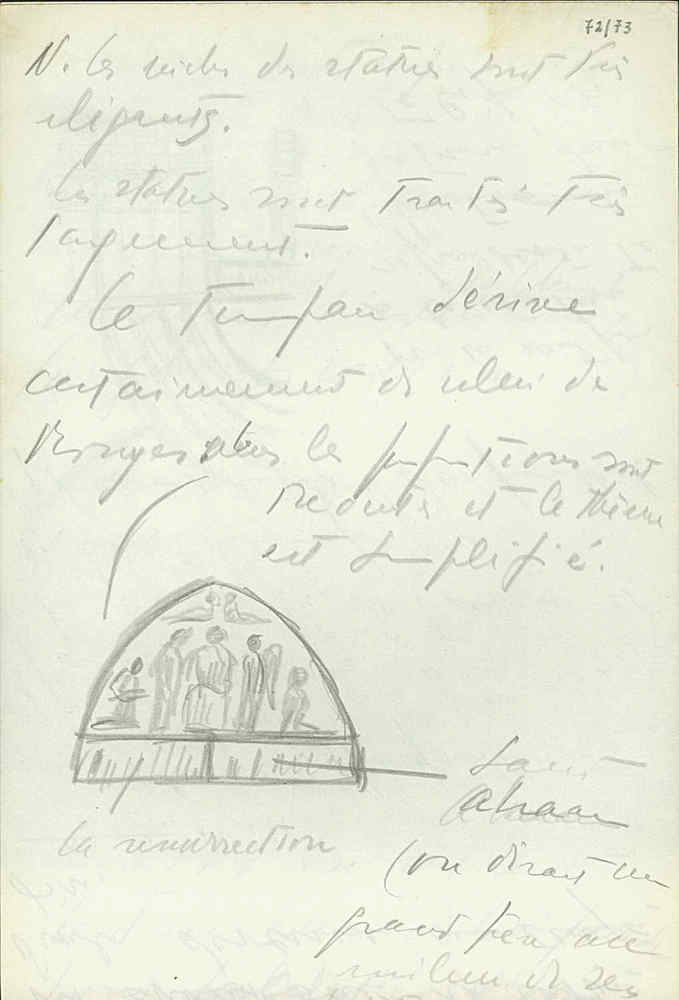 72/73
N. les niches des statues sont très
élégants.
les statues sont traités très
largement.
Le Tympan dérive
certainement de celui de
Bourges mais les proportions sont
réduites et le thème
est simplifié.
Saint
Abraam
la résurrection
(on dirait un
grand feu au
milieu de